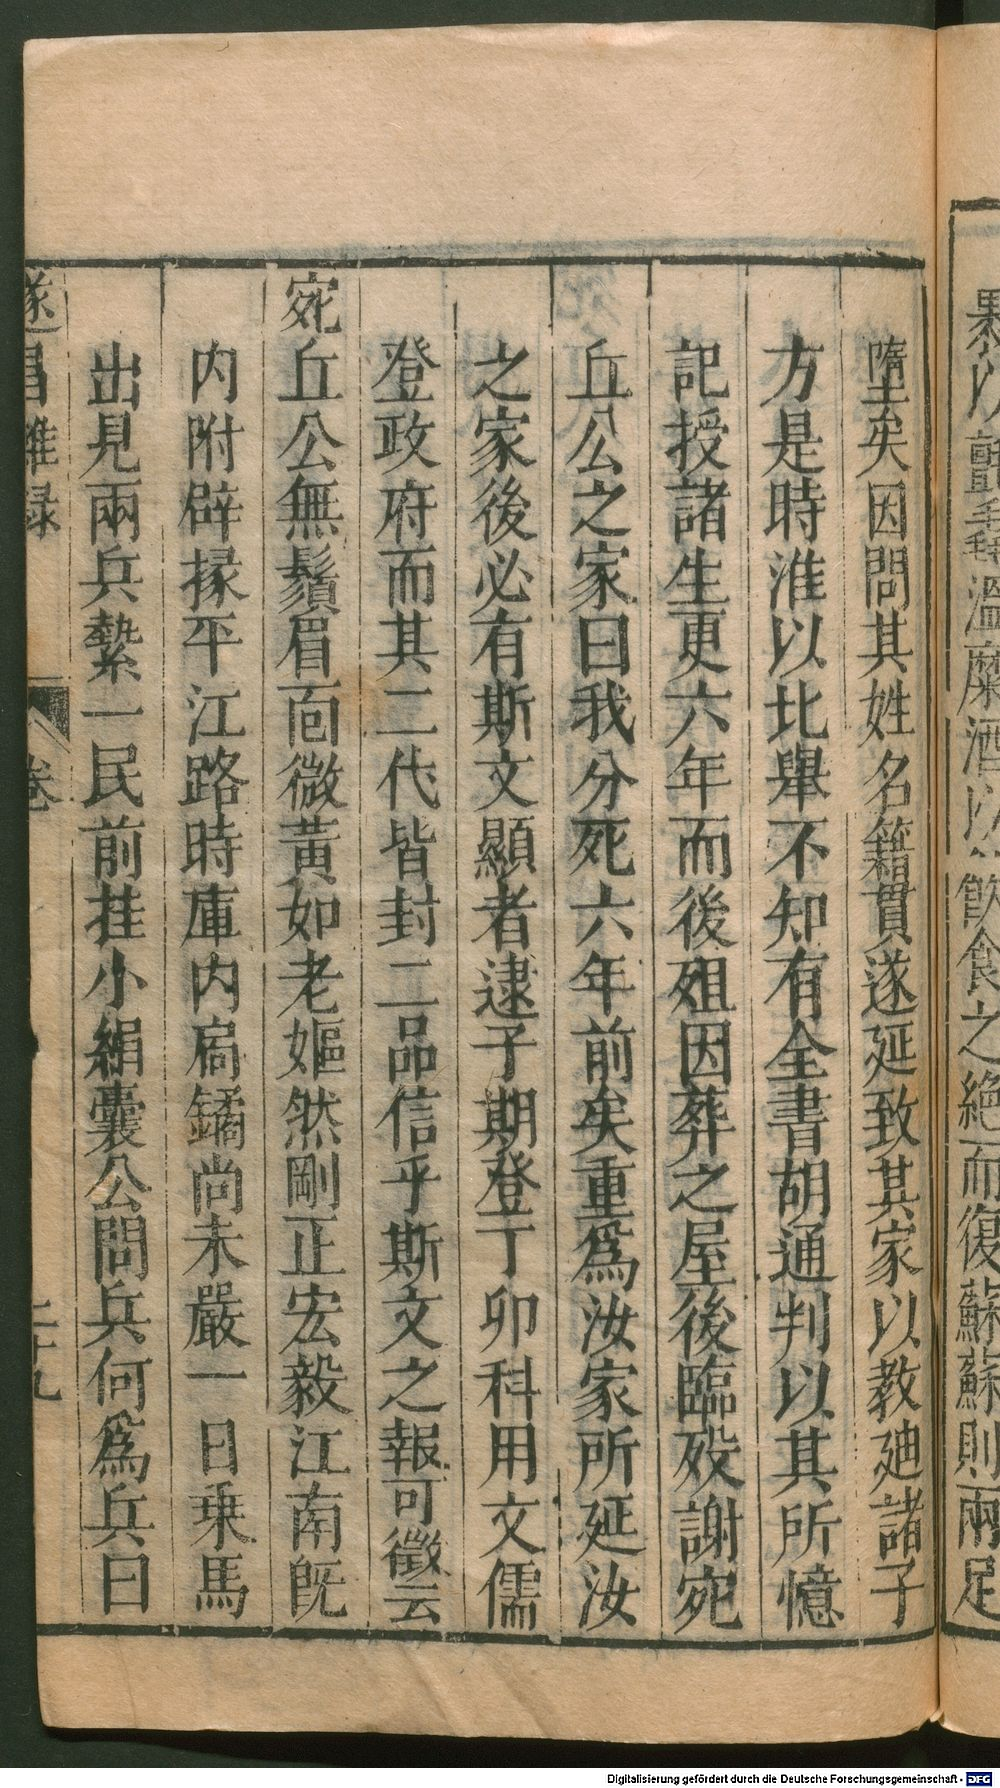 裹以氈毳溫糜酒以飲食之絕而復蘇蘇則兩足
墮矣因問其姓名籍貫遂延致其家以教廸諸子
方是時淮以北舉不知有全書胡通判以其所憶
記授諸生更六年而後殂因葬之屋後臨歿謝宛
丘公之家曰我分死六年前矣重爲汝家所延汝
之家後必有斯文顯者逮子期登丁卯科用文儒
登政府而其二代皆封二品信乎斯文之報可徵云
宛丘公無鬚眉面微黃如老嫗然剛正宏毅江南旣
内附辟掾平江路時庫内扃鐍尚未嚴一日乗馬
出見兩兵縶一民前挂小絹囊公問兵何爲兵曰
遂昌雜録 卷 二十九
Digitalisierung gefördert durch die Deutsche Forschungsgemeinschaft - DFG